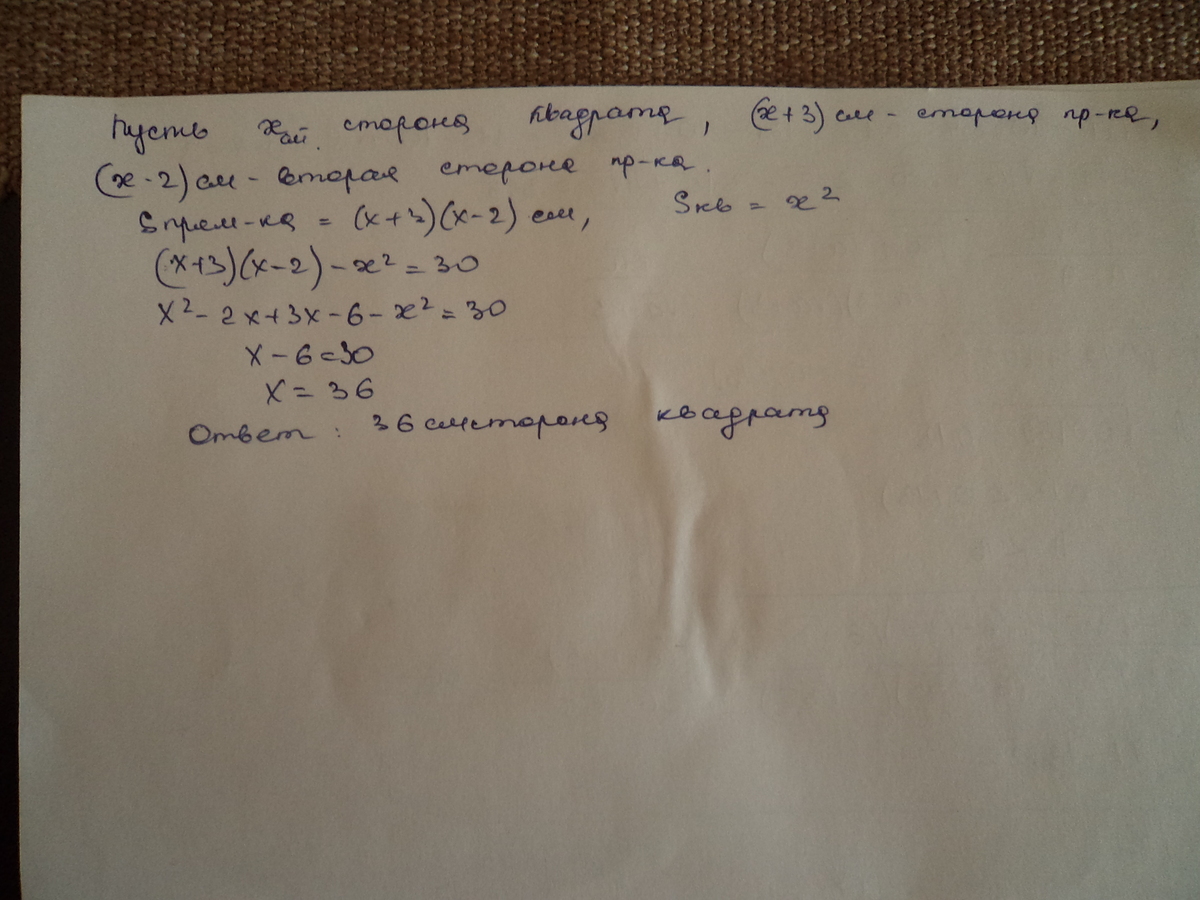 Пусть x см. сторона квадрата, (x+3) см - сторона пр-ка,
(x-2) см - вторая сторона пр-ка.
Sпрям-ка = (x+3)(x-2) см, Sкв = x²
(x+3)(x-2) - x² = 30
x² - 2x + 3x - 6 - x² = 30
x - 6 = 30
x = 36
Ответ : 36 см сторона квадрата